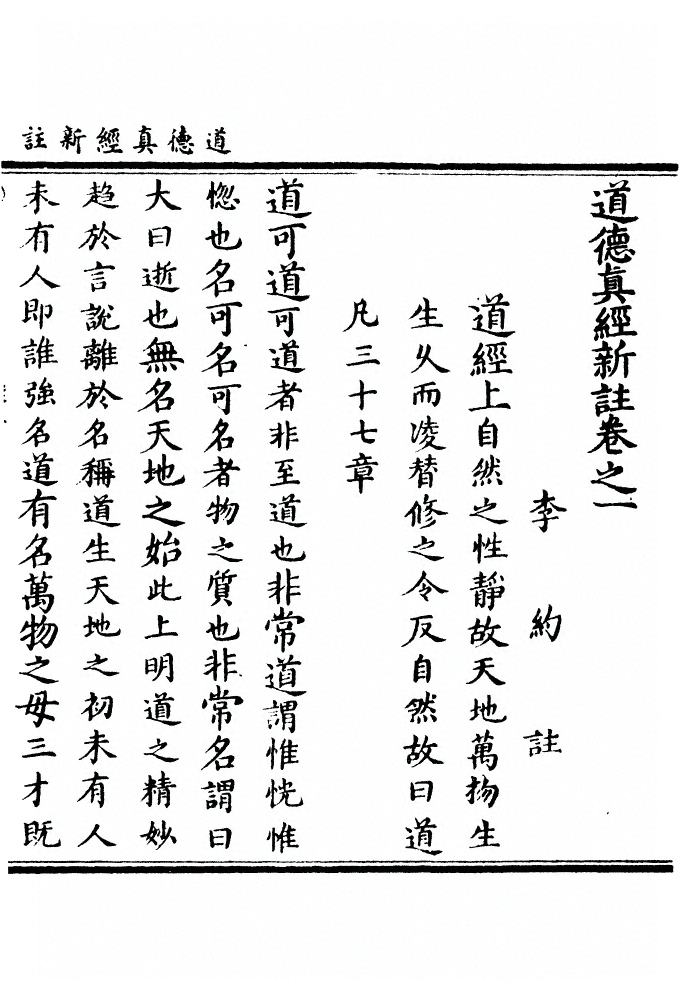 道德真經新註
道德真經新註卷之一
李約註
道經上自然之性靜故天地萬物生
生乆而凌替修之令反自然故曰道
凡三十七章
道可道可道者非至道也非常道謂惟恍惟
惚也名可名可名者物之質也非常名謂曰
大曰逝也無名天地之始此上明道之精妙
趋於言說離於名稱道生天地之初未有人
未有人即誰強名道有名萬物之母三才既